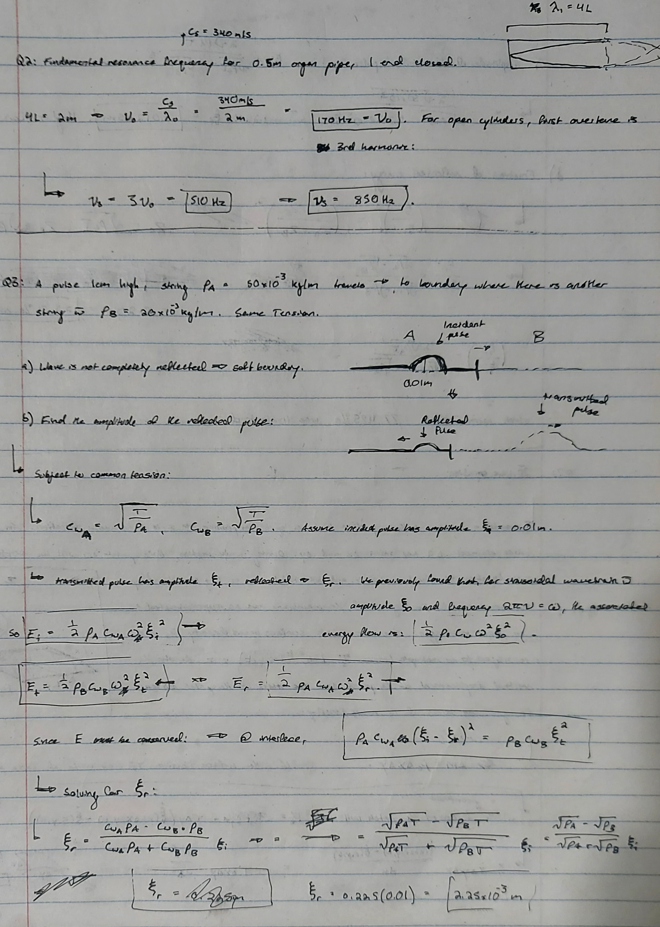 λ₁ = 4L
C_s = 340 m/s
Q2: Fundamental resonance frequency for 0.5m organ pipe, 1 end closed.
4L = 2m ⇒ ν₀ = C_s/λ₀ = 340 m/s / 2 m = 170 Hz = ν₀. For open cylinders, first overtone is
3rd harmonic:
ν₃ = 3ν₀ = 510 Hz ⇒ ν₅ = 850 Hz.
Q3: A pulse 1cm high, string ρ_A = 50×10⁻³ kg/m travels → to boundary where there is another
string w̄ ρ_B = 20×10⁻³ kg/m. Same Tension.
A Incident pulse B
a) Wave is not completely reflected ⇒ soft boundary.
0.01m
transmitted pulse
b) Find the amplitude of the reflected pulse:
Reflected Pulse
Subject to common tension:
C_wA = √(T/ρ_A), C_wB = √(T/ρ_B). Assume incident pulse has amplitude ξᵢ = 0.01m.
transmitted pulse has amplitude ξ_t, reflected ⇒ ξ_r. We previously found that, for sinusoidal wavetrain
amplitude ξ₀ and frequency 2πν = ω, the associated
so Eᵢ = ½ ρ_A C_wA ω² ξᵢ² → energy flow is: ½ ρ₀ C_w ω² ξ₀².
E_t = ½ ρ_B C_wB ω² ξ_t² ⇒ E_r = ½ ρ_A C_wA ω² ξ_r²
Since E must be conserved: ⇒ @ interface, ρ_A C_wA (ξᵢ - ξ_r)² = ρ_B C_wB ξ_t²
Solving for ξ_r:
ξ_r = (C_wA ρ_A - C_wB ρ_B)/(C_wA ρ_A + C_wB ρ_B) ξᵢ ⇒ = (√ρ_A T - √ρ_B T)/(√ρ_A T + √ρ_B T) ξᵢ = (√ρ_A - √ρ_B)/(√ρ_A + √ρ_B) ξᵢ
ξ_r = ξ_r = 0.225(0.01) = 2.25×10⁻³ m